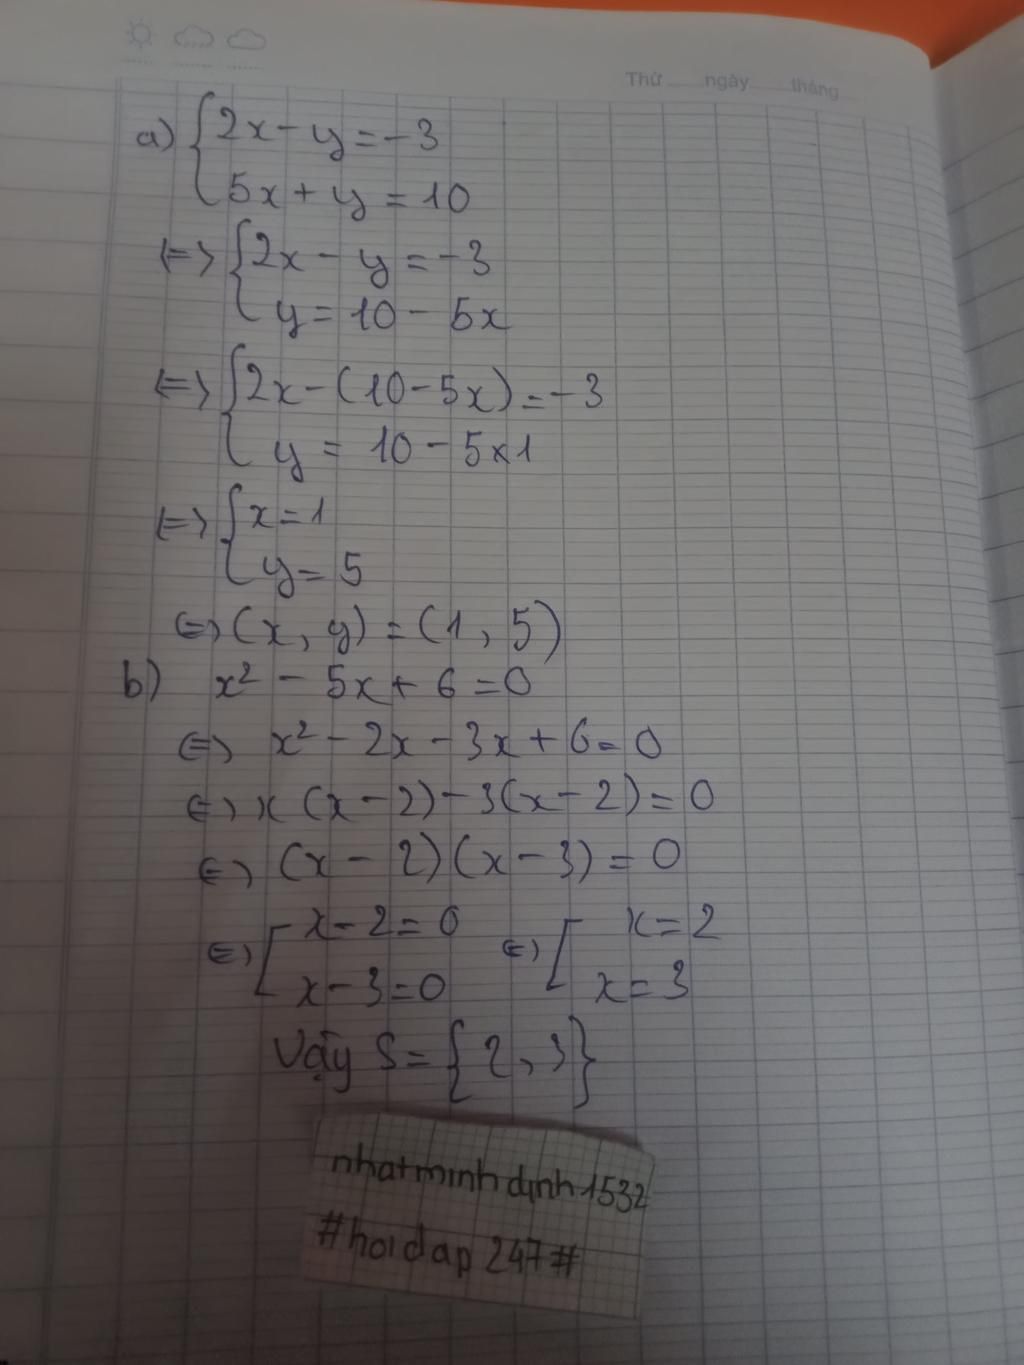 Thứ ngày tháng
a) { 2x - y = -3
5x + y = 10
<=> { 2x - y = -3
y = 10 - 5x
<=> { 2x - (10 - 5x) = -3
y = 10 - 5x1
<=> { x = 1
y = 5
<=> (x, y) = (1, 5)
b) x² - 5x + 6 = 0
<=> x² - 2x - 3x + 6 = 0
<=> x(x - 2) - 3(x - 2) = 0
<=> (x - 2)(x - 3) = 0
<=> [ x - 2 = 0 <=> [ x = 2
x - 3 = 0 x = 3
Vậy S = {2, 3}
nhatminhdinh1532
#hoidap247#